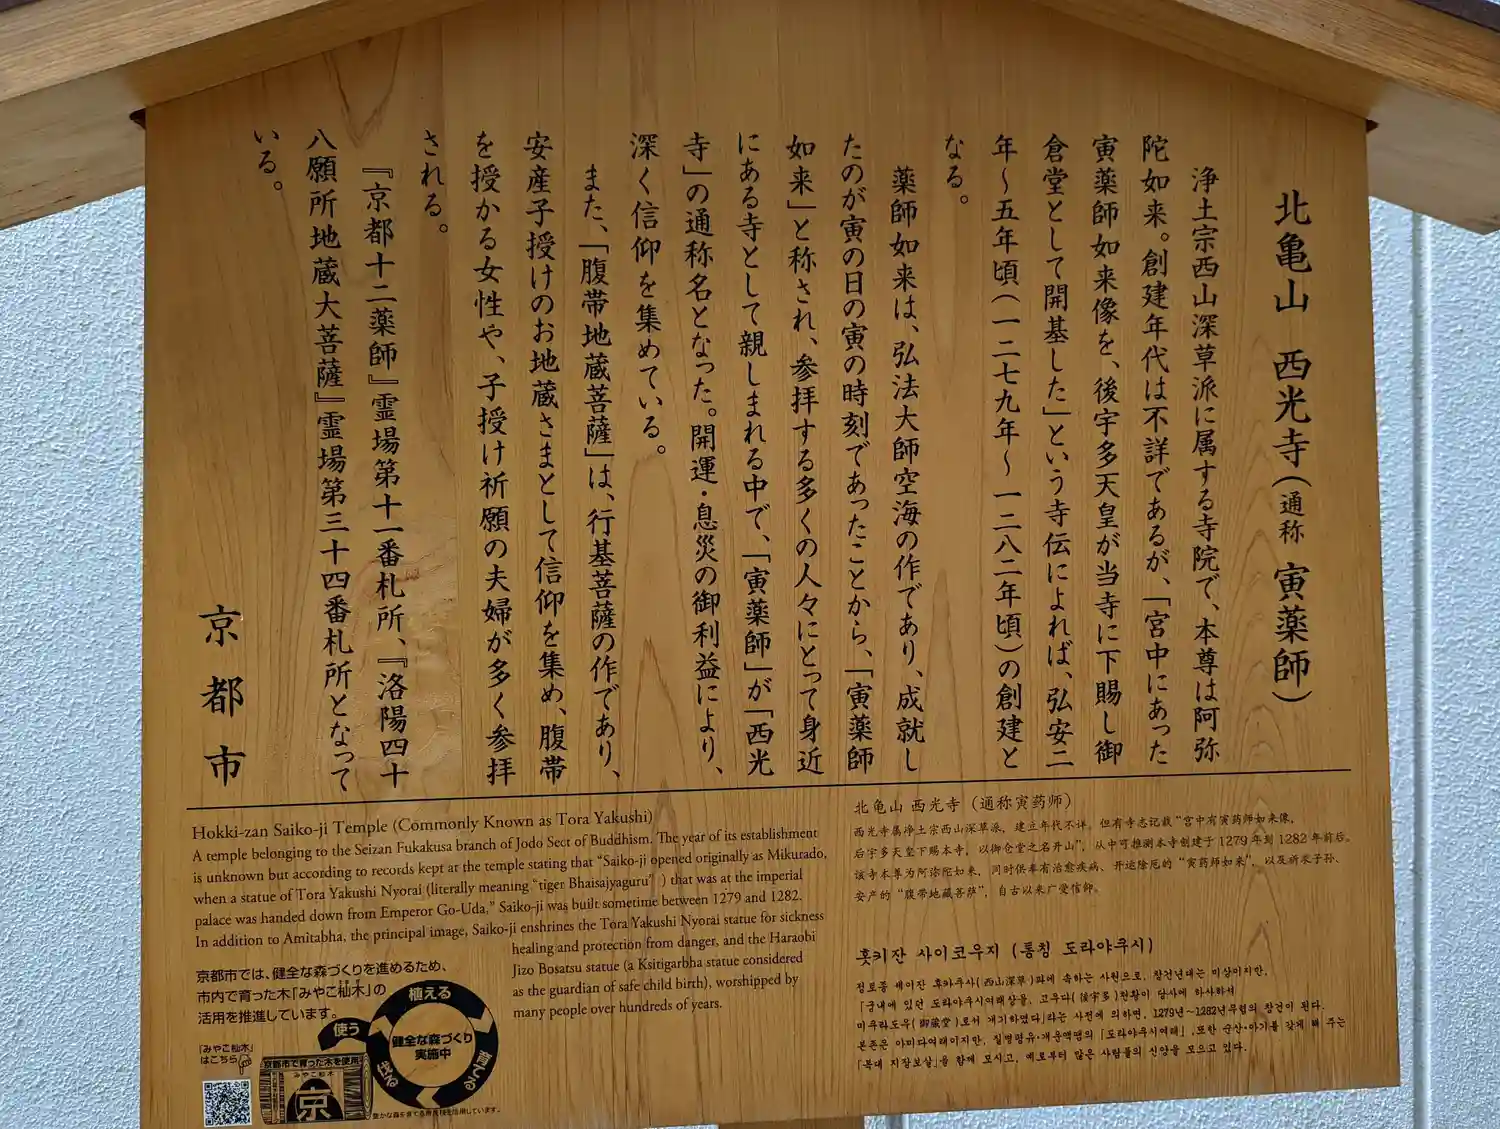 北亀山 西光寺(通称 寅薬師)
浄土宗西山深草派に属する寺院で、本尊は阿弥
陀如来。創建年代は不詳であるが、「宮中にあった
寅薬師如来像を、後宇多天皇が当寺に下賜し御
倉堂として開基した」という寺伝によれば、弘安二
年〜五年頃(一二七九年〜一二八二年頃)の創建と
なる。
薬師如来は、弘法大師空海の作であり、成就し
たのが寅の日の寅の時刻であったことから、「寅薬師
如来」と称され、参拝する多くの人々にとって身近
にある寺として親しまれる中で、「寅薬師」が「西光
寺」の通称名となった。開運・息災の御利益により、
深く信仰を集めている。
また、「腹帯地蔵菩薩」は、行基菩薩の作であり、
安産子授けのお地蔵さまとして信仰を集め、腹帯
を授かる女性や、子授け祈願の夫婦が多く参拝
される。
『京都十二薬師』霊場第十一番札所、『洛陽四十
八願所地蔵大菩薩』霊場第三十四番札所となって
いる。
京都市
Hokki-zan Saiko-ji Temple (Commonly Known as Tora Yakushi)
A temple belonging to the Seizan Fukakusa branch of Jodo Sect of Buddhism. The year of its establishment
is unknown but according to records kept at the temple stating that “Saiko-ji opened originally as Mikurado,
when a statue of Tora Yakushi Nyorai (literally meaning “tiger Bhaisajyaguru” ) that was at the imperial
palace was handed down from Emperor Go-Uda,” Saiko-ji was built sometime between 1279 and 1282.
In addition to Amitabha, the principal image, Saiko-ji enshrines the Tora Yakushi Nyorai statue for sickness
healing and protection from danger, and the Haraobi
Jizo Bosatsu statue (a Ksitigarbha statue considered
as the guardian of safe child birth), worshipped by
many people over hundreds of years.
京都市では、健全な森づくりを進めるため、
市内で育った木「みやこ杣木」の
活用を推進しています。
「みやこ杣木」
はこちら
京都市で育った木を使用
みやこ杣木
京
植える
育てる
伐る
使う
健全な森づくり
実施中
豊かな森を育てる府民税を活用しています。
北龟山 西光寺（通称寅药师）
西光寺属净土宗西山深草派，建立年代不详。但有寺志记载“宫中有寅药师如来像，
后宇多天皇下赐本寺，以御仓堂之名开山”，从中可推测本寺创建于 1279 年到 1282 年前后。
该寺本尊为阿弥陀如来，同时供奉有治愈疾病、开运除厄的“寅药师如来”，以及祈求子孙、
安产的“腹带地藏菩萨”，自古以来广受信仰。
홋키잔 사이코우지 (통칭 도라야쿠시)
정토종 세이잔 후카쿠사(西山深草)파에 속하는 사원으로, 창건년대는 미상이지만,
「궁내에 있던 도라야쿠시여래상을, 고우다(後宇多)천황이 당사에 하사하셔
미쿠라도우(御蔵堂)로서 개기하였다」라는 사전에 의하면, 1279년~1282년무렵의 창건이 된다.
본존은 아미다여래이지만, 질병평유·개운액땜의 「도라야쿠시여래」,또한 순산·아기를 갖게 해 주는
「복대 지장보살」을 함께 모시고, 예로부터 많은 사람들의 신앙을 모으고 있다.